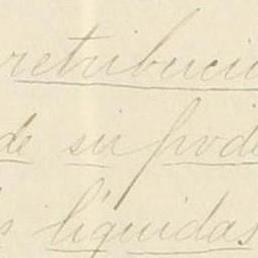 retribuci
de su pode
s líquidas